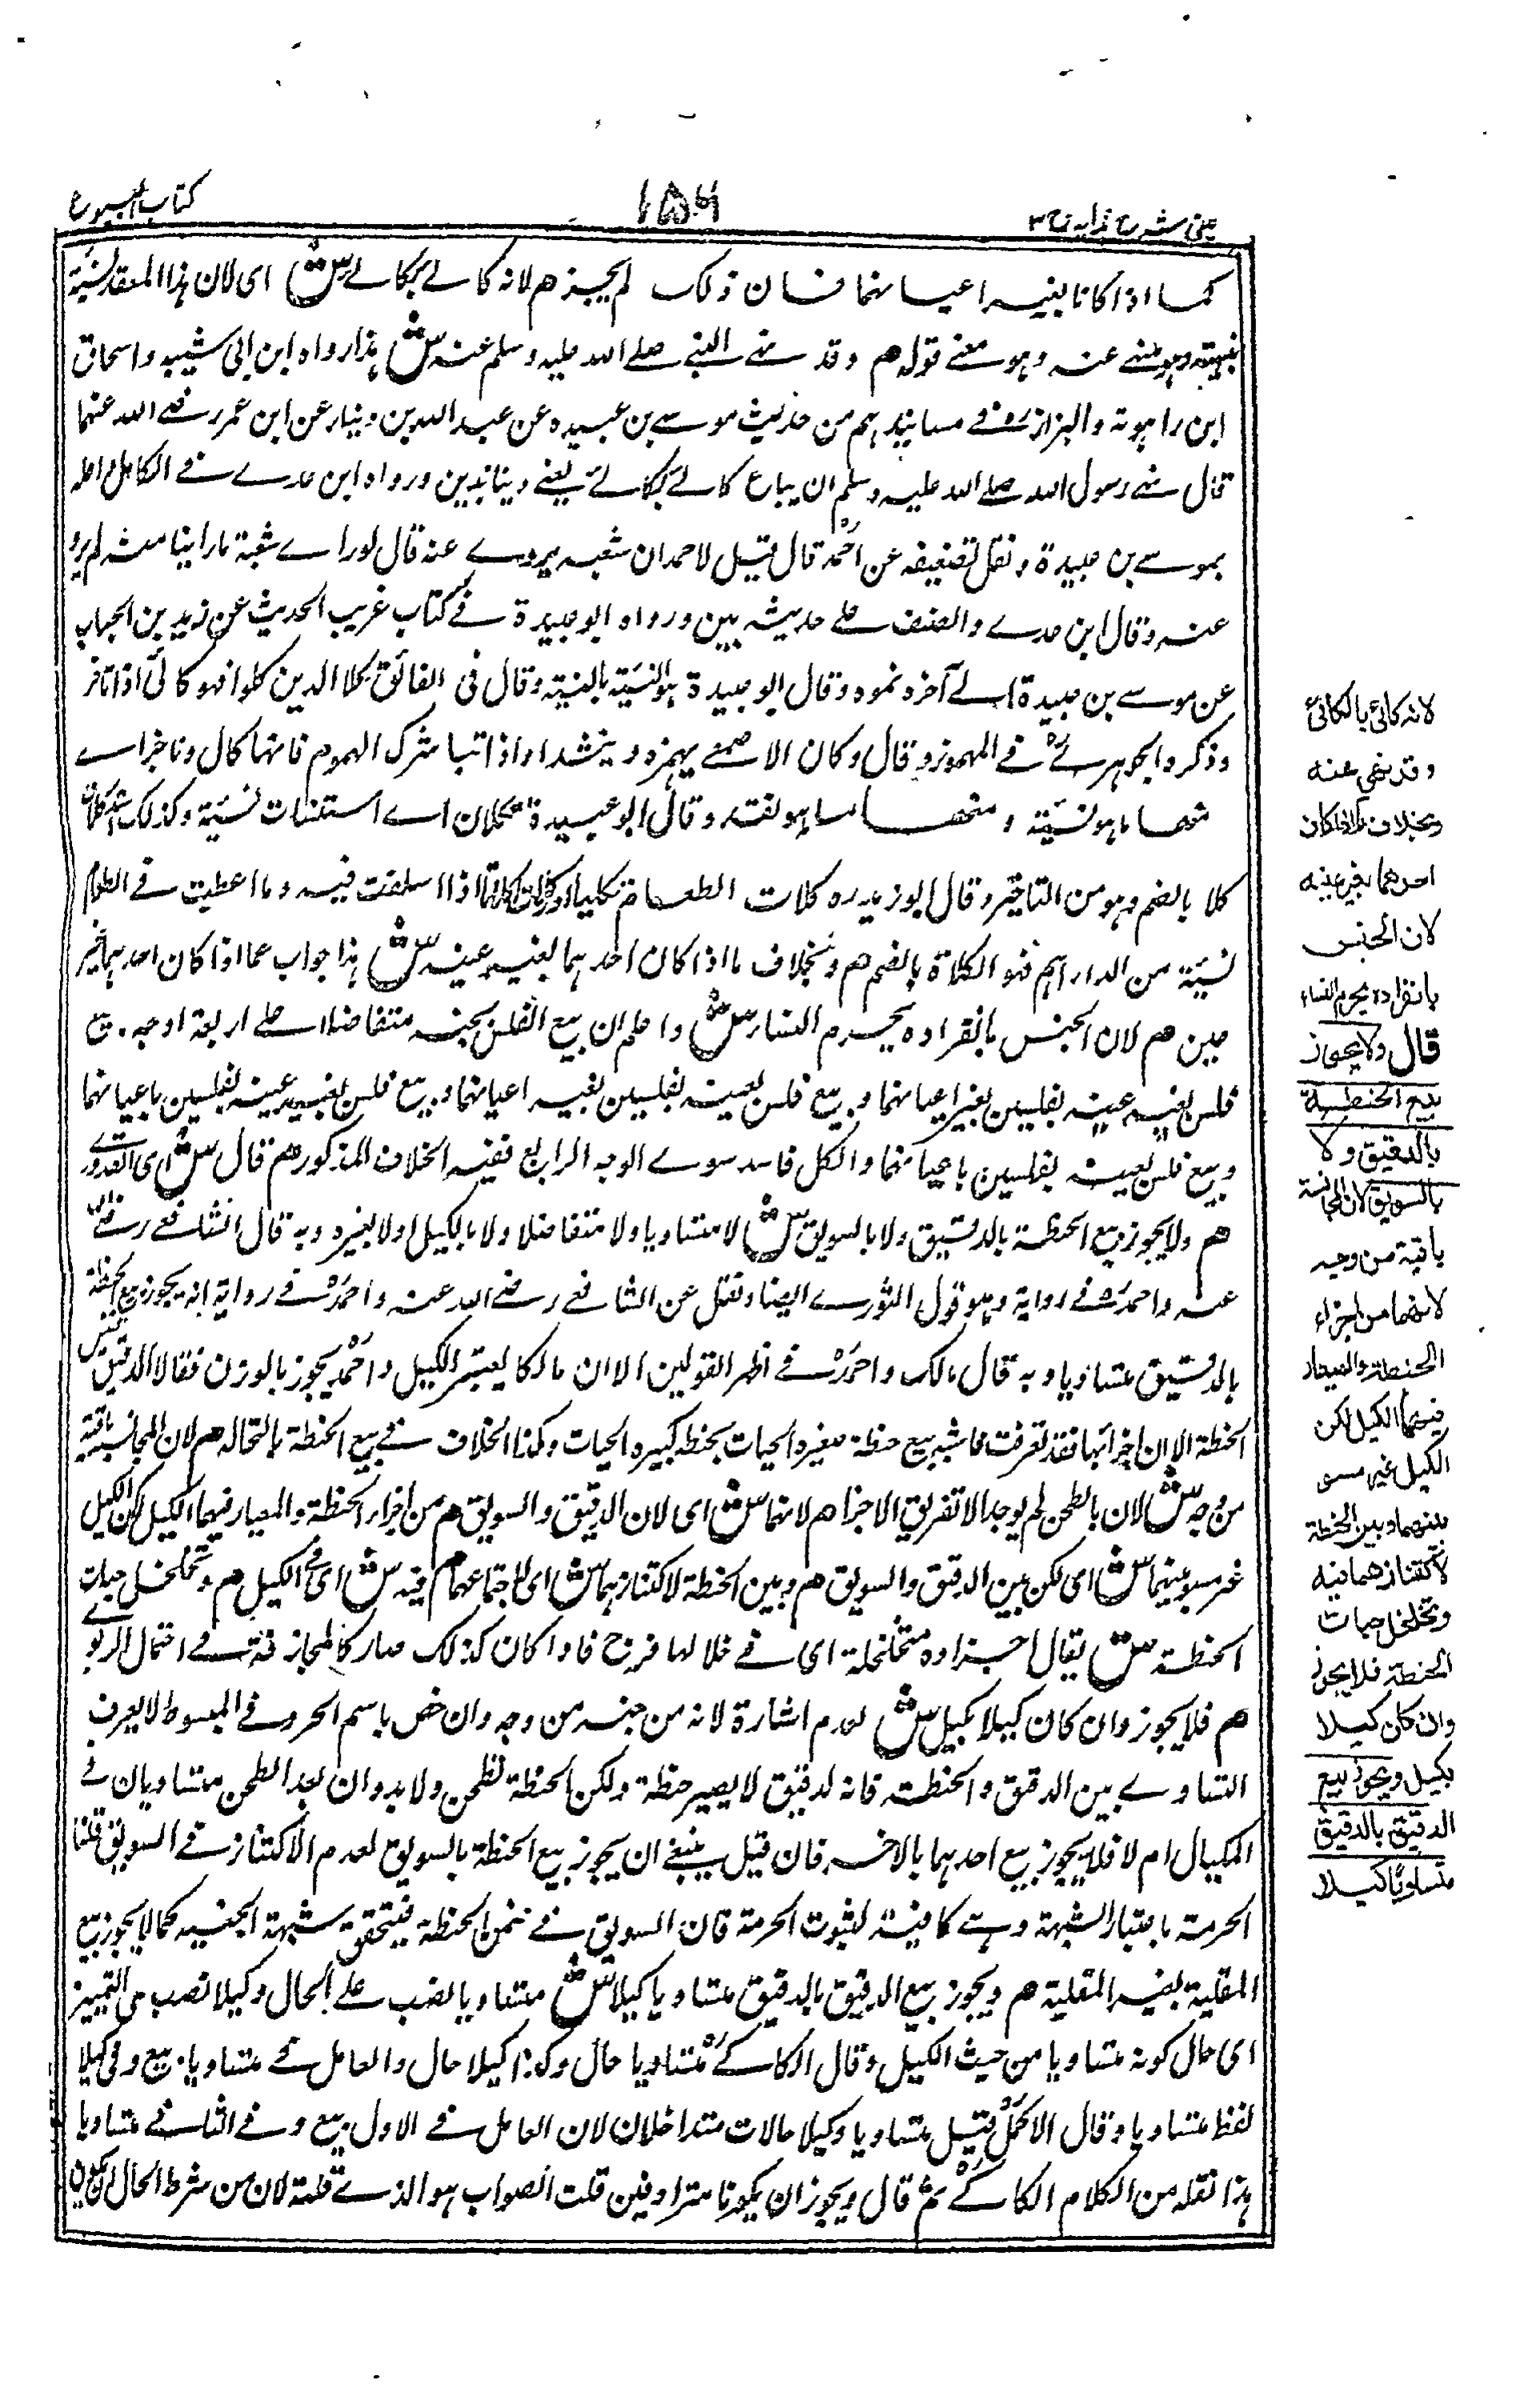 عينى شرح هدايه ج ٣
١٥٦
كتاب البيوع
كما اذا كانا بغير اعيانهما فان ذلك لم يجز هم لانه كالئ بكالئ ش اى لان هذا العقد نسيئة
بنسيئة وهو منهى عنه وهو معنى قوله هم وقد نهى النبى صلى الله عليه وسلم عنه ش هذا رواه ابن ابى شيبه واسحاق
ابن راهويه والبزاز فى مسانيدهم من حديث موسى بن عبيده عن عبد الله بن دينار عن ابن عمر رضى الله عنهما
قال نهى رسول الله صلى الله عليه وسلم ان يباع كالئ بكالئ يعنى دينا بدين ورواه ابن عدى فى الكامل واعله
بموسى بن عبيدة ونقل تضعيفه عن احمد قال قيل لاحمد ان شعبه يروى عنه قال لو راى شعبة ما راينا منه لم يرو
عنه وقال ابن عدى والضعف على حديثه بين ورواه ابو عبيدة فى كتاب غريب الحديث عن زيد بن الحباب
عن موسى بن عبيدة الى آخره نحوه وقال ابو عبيدة هو النسيئة بالنسيئة وقال فى الفائق كلا الدين كلوا فهو كالئ اذا تاخر
وذكره الجوهرى فى المهموز وقال وكان الاصمعى يهمزه وينشد واذا تباشرك الهموم فانها كال وناجز اى
منها ما هو نسيئة ومنها ما هو نقد وقال ابو عبيدة تكلات اى استنسات نسيئة وكذلك
كلا بالضم وهو من التاخير وقال ابو زيد كلات الطعام تكليا اذا اسلفت فيه وما اعطيت فى الطعام
نسيئة من الدراهم فهو الكلاة بالضم هم وبخلاف ما اذا كان احدهما بغير عينه ش هذا جواب عما اذا كان احدهما بغير
عين هم لان الجنس بانفراده يحرم النساء ش واعلم ان بيع الفلس بجنسه متفاضلا على اربعة اوجه بيع
فلس بغير عينه بفلسين بغير اعيانهما وبيع فلس بعينه بفلسين بغير اعيانهما وبيع فلس بغير عينه بفلسين باعيانهما
وبيع فلس بعينه بفلسين باعيانهما والكل فاسد سوى الوجه الرابع ففيه الخلاف المذكور هم قال ش اى القدورى
هم ولا يجوز بيع الحنطة بالدقيق ولا بالسويق ش لا متساويا ولا متفاضلا ولا بالكيل ولا بغيره وبه قال الشافعى رضى الله
عنه واحمد فى رواية وهو قول الثورى ايضا ونقل عن الشافعى رضى الله عنه واحمد فى رواية انه يجوز بيع الحنطة
بالدقيق متساويا وبه قال مالك واحمد فى اظهر القولين الا ان مالكا يعتبر الكيل واحمد يجوز بالوزن فقالا الدقيق نفس
الحنطة الا ان اجزائها فقد تفرقت فاشبه بيع حنطة صغيرة الحبات بحنطة كبيرة الحبات وكذا الخلاف فى بيع الحنطة بالنخاله هم لان المجانسة باقية
من وجه ش لان بالطحن لم يوجد الا تفريق الاجزا هم لانهما ش اى لان الدقيق والسويق هم من اجزاء الحنطة والمعيار فيهما الكيل لكن الكيل
غير مسو بينهما ش اى لكن بين الدقيق والسويق هم وبين الحنطة لاكتنازهما ش اى لاجتماعهما هم فيه ش اى فى الكيل هم وتخلخل حبات
الحنطة ش يقال اجزاءه متخلخلة اى فى خلالها فرج فاذا كان كذلك صار كالمجازفة فى احتمال الربوى
هم فلا يجوز وان كان كيلا بكيل ش لعدم اشارة لانه من جنسه من وجه وان خص باسم آخر وفى المبسوط لا يعرف
التساوى بين الدقيق والحنطة فانه لدقيق لا يصير حنطة ولكن الحنطة تطحن ولا يدرى ان بعد الطحن متساويان فى
المكيال ام لا فلا يجوز بيع احدهما بالآخر فان قيل ينبغى ان يجوز بيع الحنطة بالسويق لعدم الاكتناز فى السويق قلنا
الحرمة باعتبار الشبهة وهى كافية لثبوت الحرمة فان السويق فى ضمن الحنطة فيتحقق شبهة الجنسيه كما لا يجوز بيع
المقلية بغير المقلية هم ويجوز بيع الدقيق بالدقيق متساويا كيلا ش متساويا نصب على الحال وكيلا نصب على التمييز
اى حال كونه متساويا من حيث الكيل وقال الكاكى متساويا حال وكذا كيلا حال والعامل فى متساويا بيع وفى كيلا
لفظ متساويا وقال الاكمل قيل متساويا وكيلا حالات متداخلان لان العامل فى الاول بيع وفى الثانى متساويا
هذا نقله من الكلام الكاكى ثم قال ويجوز ان يكونا مترادفين قلت الصواب هو الذى قلته لان من شرط الحال ان يكون
لانه كالئ بالكالئ
وقد نهى عنه
وبخلاف ما اذا كان
احدهما بغير عينه
لان الجنس
بانفراده يحرم النساء
قال ولا يجوز
بيع الحنطة
بالدقيق ولا
بالسويق لان المجانسة
باقية من وجه
لانهما من اجزاء
الحنطة والمعيار
فيهما الكيل لكن
الكيل غير مسو
بينهما وبين الحنطة
لاكتنازهما فيه
وتخلخل حبات
الحنطة فلا يجوز
وان كان كيلا
بكيل ويجوز بيع
الدقيق بالدقيق
متساويا كيلا